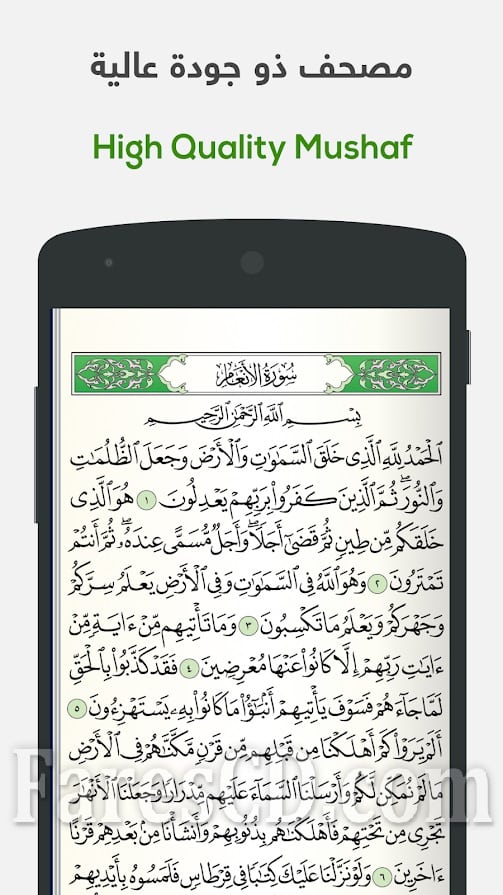 مصحف ذو جودة عالية
High Quality Mushaf
سُورَةُ الأَنْعَامِ
بِسْمِ ٱللَّهِ ٱلرَّحْمَٰنِ ٱلرَّحِيمِ
ٱلْحَمْدُ لِلَّهِ ٱلَّذِى خَلَقَ ٱلسَّمَٰوَٰتِ وَٱلْأَرْضَ وَجَعَلَ ٱلظُّلُمَٰتِ
وَٱلنُّورَ ۖ ثُمَّ ٱلَّذِينَ كَفَرُوا۟ بِرَبِّهِمْ يَعْدِلُونَ ١ هُوَ ٱلَّذِى
خَلَقَكُم مِّن طِينٍ ثُمَّ قَضَىٰٓ أَجَلًا ۖ وَأَجَلٌ مُّسَمًّى عِندَهُۥ ۖ ثُمَّ أَنتُمْ
تَمْتَرُونَ ٢ وَهُوَ ٱللَّهُ فِى ٱلسَّمَٰوَٰتِ وَفِى ٱلْأَرْضِ ۖ يَعْلَمُ سِرَّكُمْ
وَجَهْرَكُمْ وَيَعْلَمُ مَا تَكْسِبُونَ ٣ وَمَا تَأْتِيهِم مِّنْ ءَايَةٍ مِّنْ
ءَايَٰتِ رَبِّهِمْ إِلَّا كَانُوا۟ عَنْهَا مُعْرِضِينَ ٤ فَقَدْ كَذَّبُوا۟ بِٱلْحَقِّ
لَمَّا جَآءَهُمْ ۖ فَسَوْفَ يَأْتِيهِمْ أَنۢبَٰٓؤُا۟ مَا كَانُوا۟ بِهِۦ يَسْتَهْزِءُونَ ٥
أَلَمْ يَرَوْا۟ كَمْ أَهْلَكْنَا مِن قَبْلِهِم مِّن قَرْنٍ مَّكَّنَّٰهُمْ فِى ٱلْأَرْضِ
مَا لَمْ نُمَكِّن لَّكُمْ وَأَرْسَلْنَا ٱلسَّمَآءَ عَلَيْهِم مِّدْرَارًا وَجَعَلْنَا ٱلْأَنْهَٰرَ
تَجْرِى مِن تَحْتِهِمْ فَأَهْلَكْنَٰهُم بِذُنُوبِهِمْ وَأَنشَأْنَا مِنۢ بَعْدِهِمْ قَرْنًا
ءَاخَرِينَ ٦ وَلَوْ نَزَّلْنَا عَلَيْكَ كِتَٰبًا فِى قِرْطَاسٍ فَلَمَسُوهُ بِأَيْدِيهِمْ
FaresCD.com